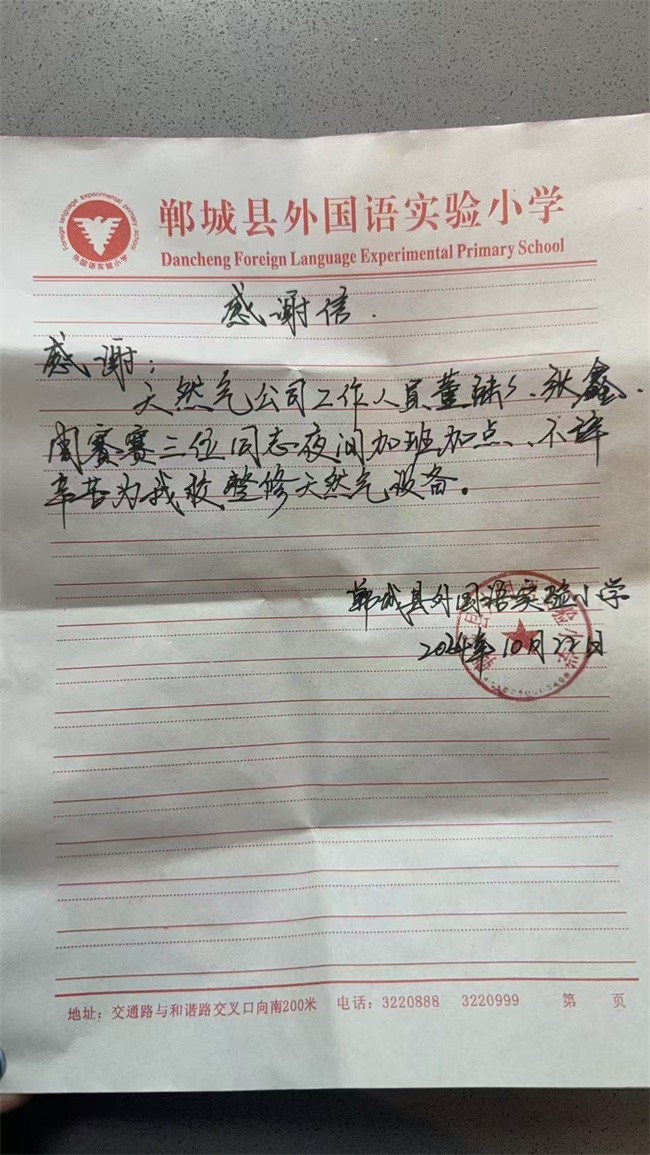 郸城县外国语实验小学
Dancheng Foreign Language Experimental Primary School
Foreign language experimental primary school
感谢信.
感谢:
天然气公司工作人员董 、张鑫、
周赛赛三位同志夜间加班加点、不辞
辛苦为我校整修天然气设备。
郸城县外国语实验小学
2024年10月22日
地址：交通路与和谐路交叉口向南200米 电话：3220888 3220999 第 页